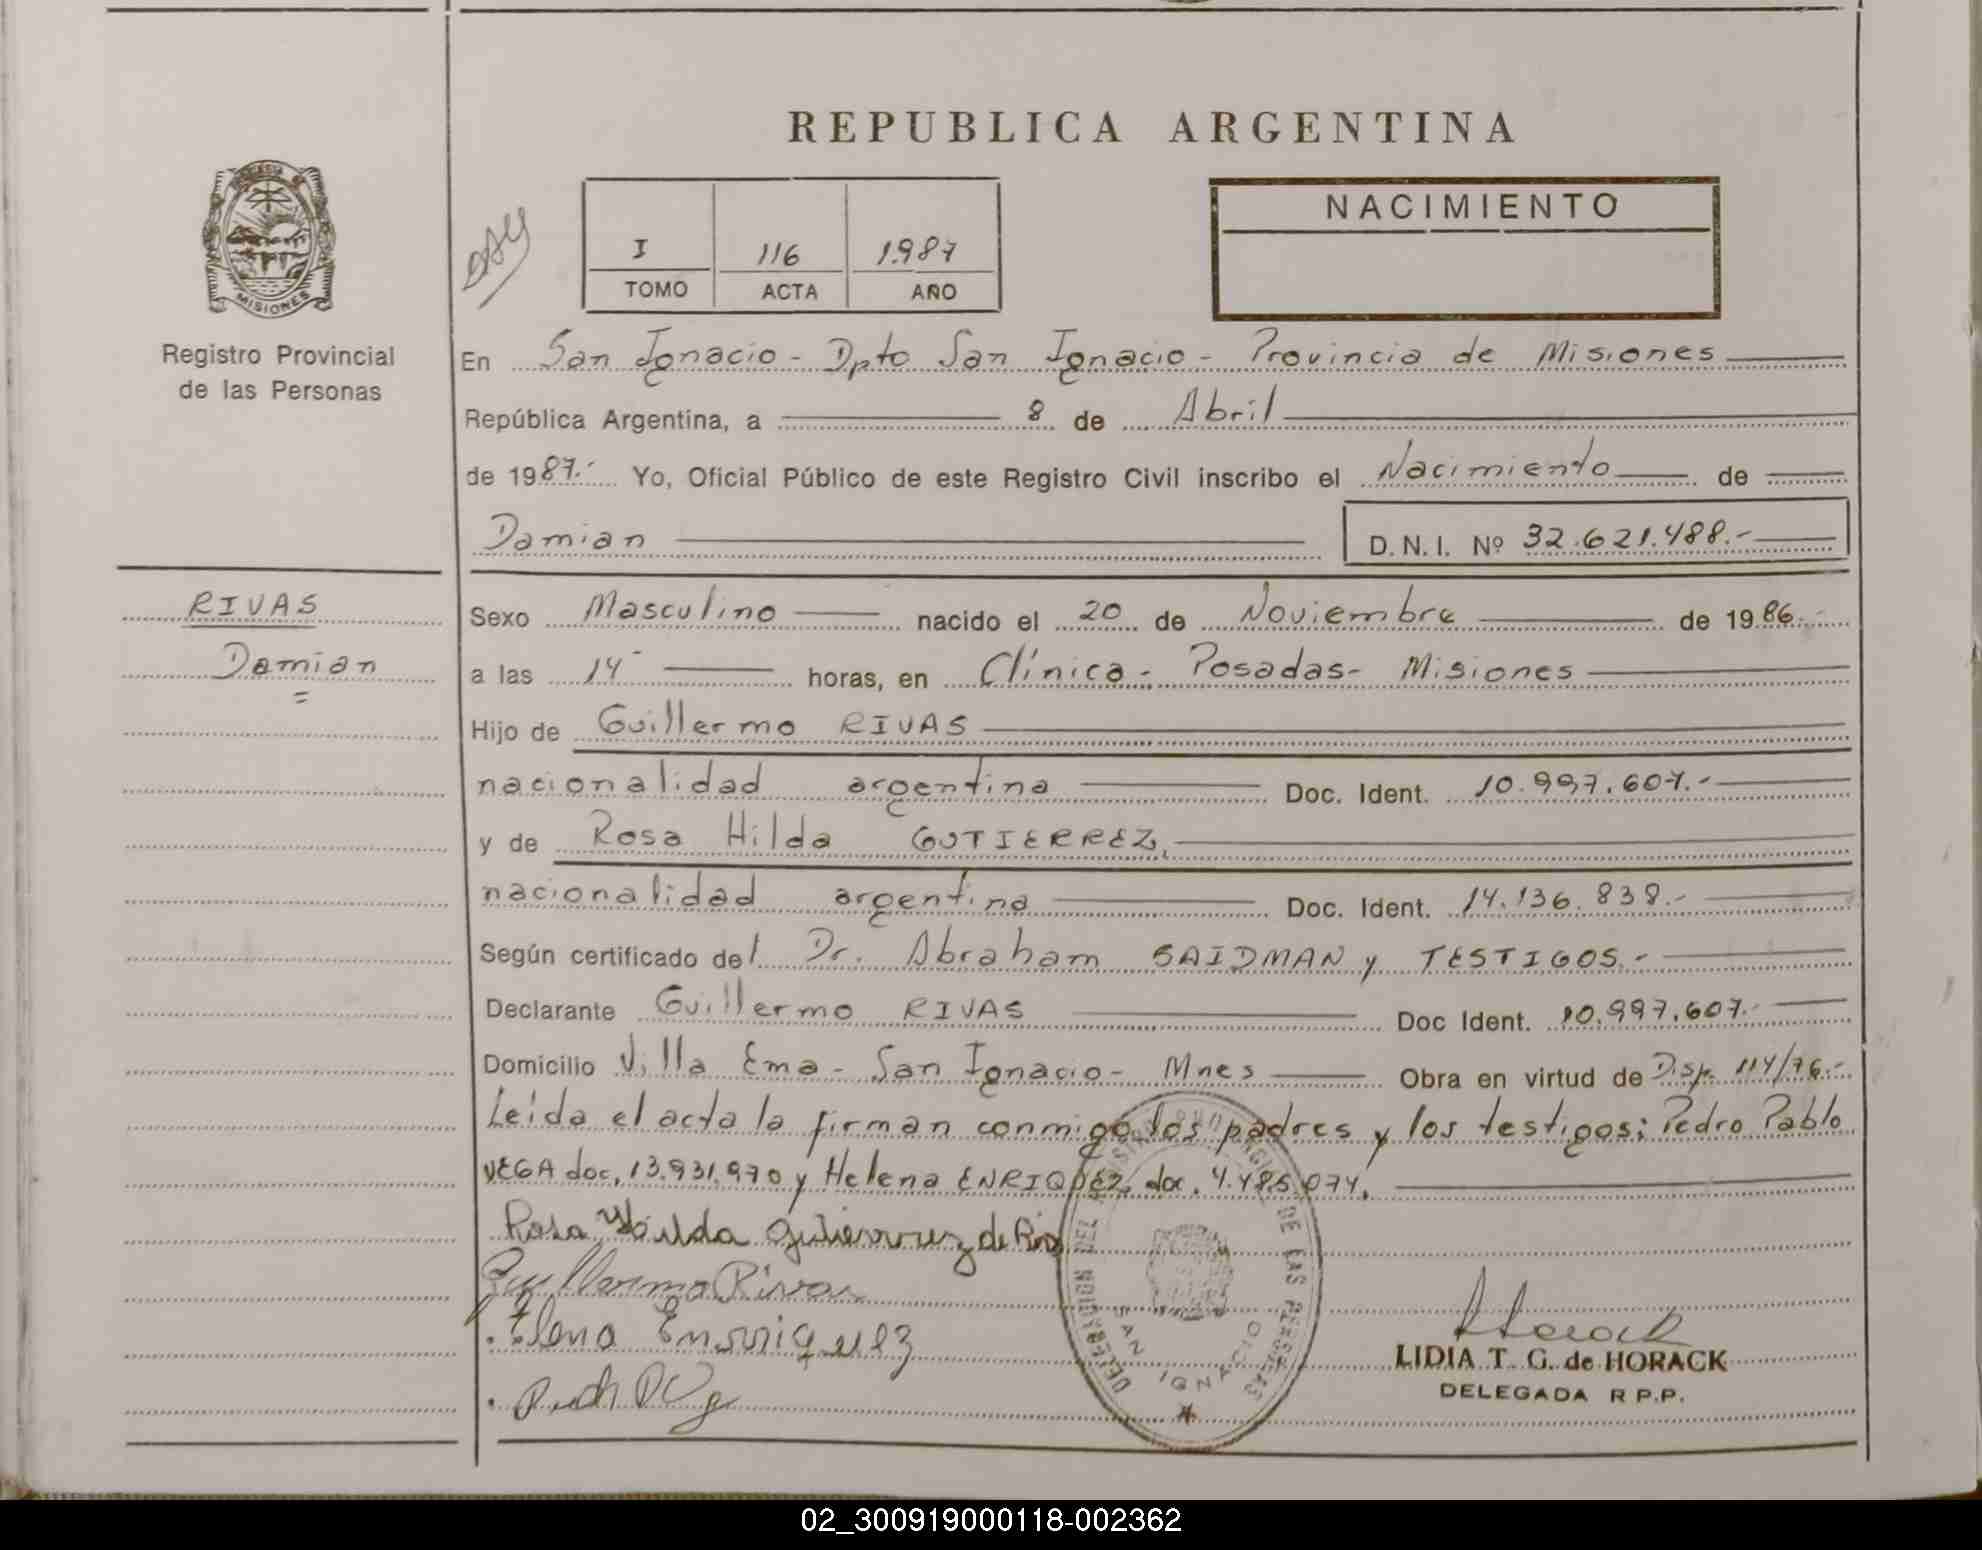 REPUBLICA ARGENTINA
MISIONES
Registro Provincial
de las Personas
I 116 1.987
TOMO ACTA AÑO
NACIMIENTO
En San Ignacio - Dpto San Ignacio - Provincia de Misiones
República Argentina, a 8 de Abril
de 1987.- Yo, Oficial Público de este Registro Civil inscribo el Nacimiento de
Damian D.N.I. Nº 32.621.488.-
RIVAS
Damian
Sexo Masculino nacido el 20 de Noviembre de 1986.-
a las 14 horas, en Clínica - Posadas - Misiones
Hijo de Guillermo RIVAS
nacionalidad argentina Doc. Ident. 10.997.607.-
y de Rosa Hilda GUTIERREZ,
nacionalidad argentina Doc. Ident. 14.136.838.-
Según certificado del Dr. Abraham SAIDMAN y TESTIGOS.-
Declarante Guillermo RIVAS Doc Ident. 10.997.607.-
Domicilio Villa Ema - San Ignacio - Mnes Obra en virtud de Disp. 114/76.-
Leída el acta la firman conmigo los padres y los testigos; Pedro Pablo
VEGA doc. 13.931.970 y Helena ENRIQUEZ, doc. 4.485.074.
Rosa Hilda Gutierrez de
Guillermo Rivas
Elena Enrriquez
DELEGACION DEL REGISTRO PROVINCIAL DE LAS PERSONAS
SAN IGNACIO
Horack
LIDIA T. G. de HORACK
DELEGADA R P.P.
02_300919000118-002362